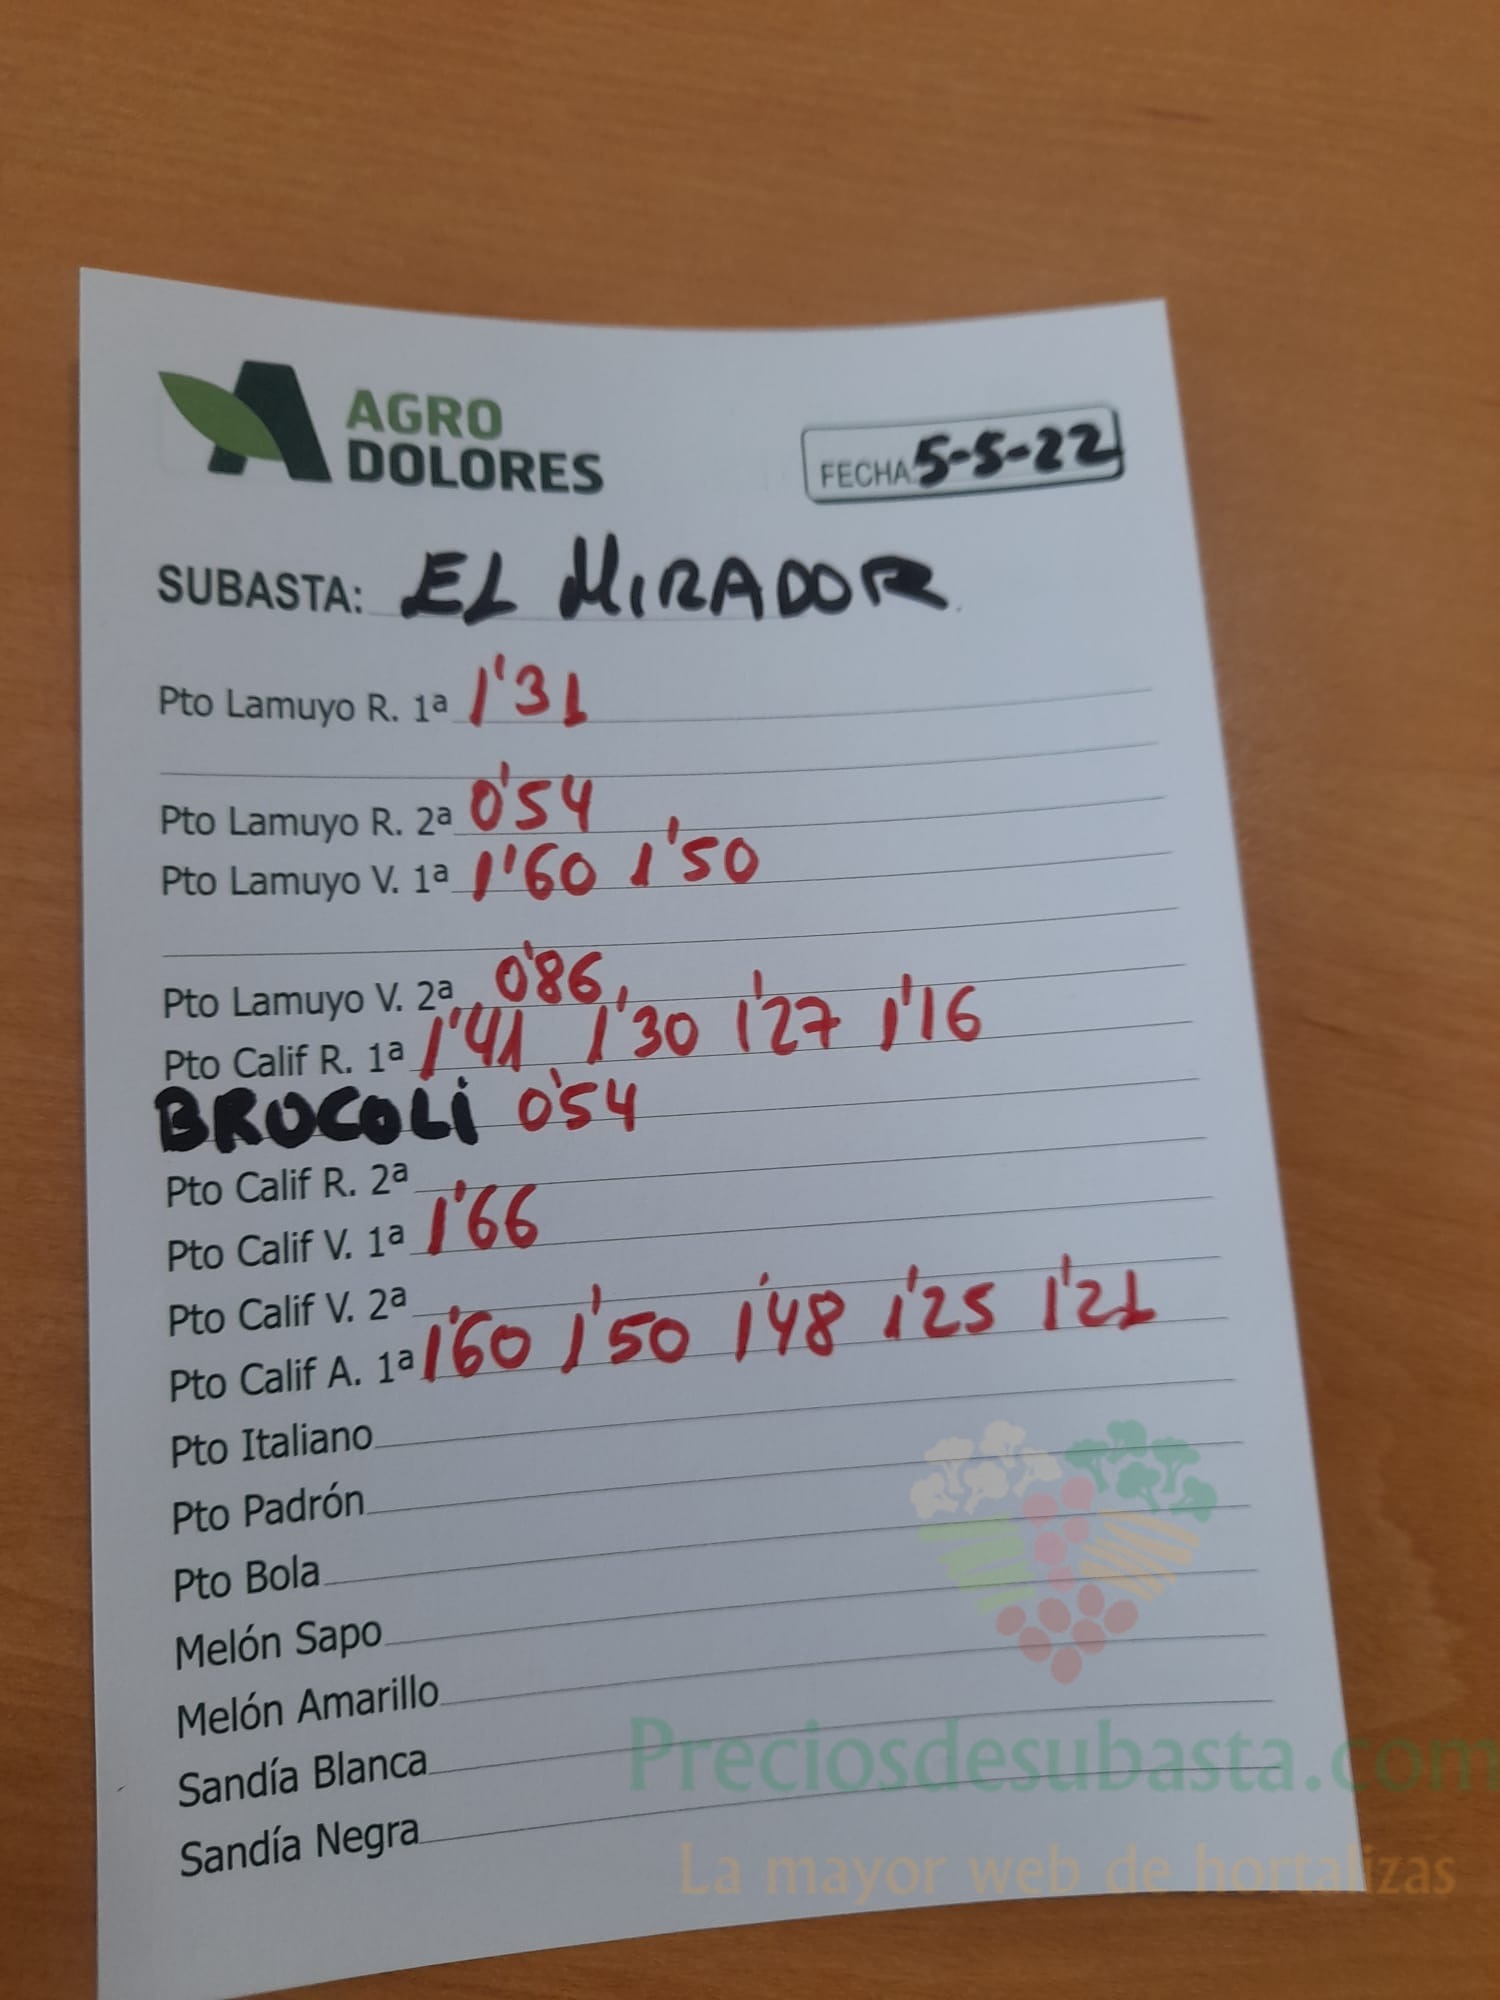 AGRO
DOLORES
FECHA 5-5-22
SUBASTA: EL MIRADOR
Pto Lamuyo R. 1ª 1'31
Pto Lamuyo R. 2ª 0'54
Pto Lamuyo V. 1ª 1'60 1'50
Pto Lamuyo V. 2ª 0'86
Pto Calif R. 1ª 1'41 1'30 1'27 1'16
BROCOLI 0'54
Pto Calif R. 2ª
Pto Calif V. 1ª 1'66
Pto Calif V. 2ª
Pto Calif A. 1ª 1'60 1'50 1'48 1'25 1'21
Pto Italiano
Pto Padrón
Pto Bola
Melón Sapo
Melón Amarillo
Sandía Blanca
Sandía Negra
Preciosdesubasta.com
La mayor web de hortalizas